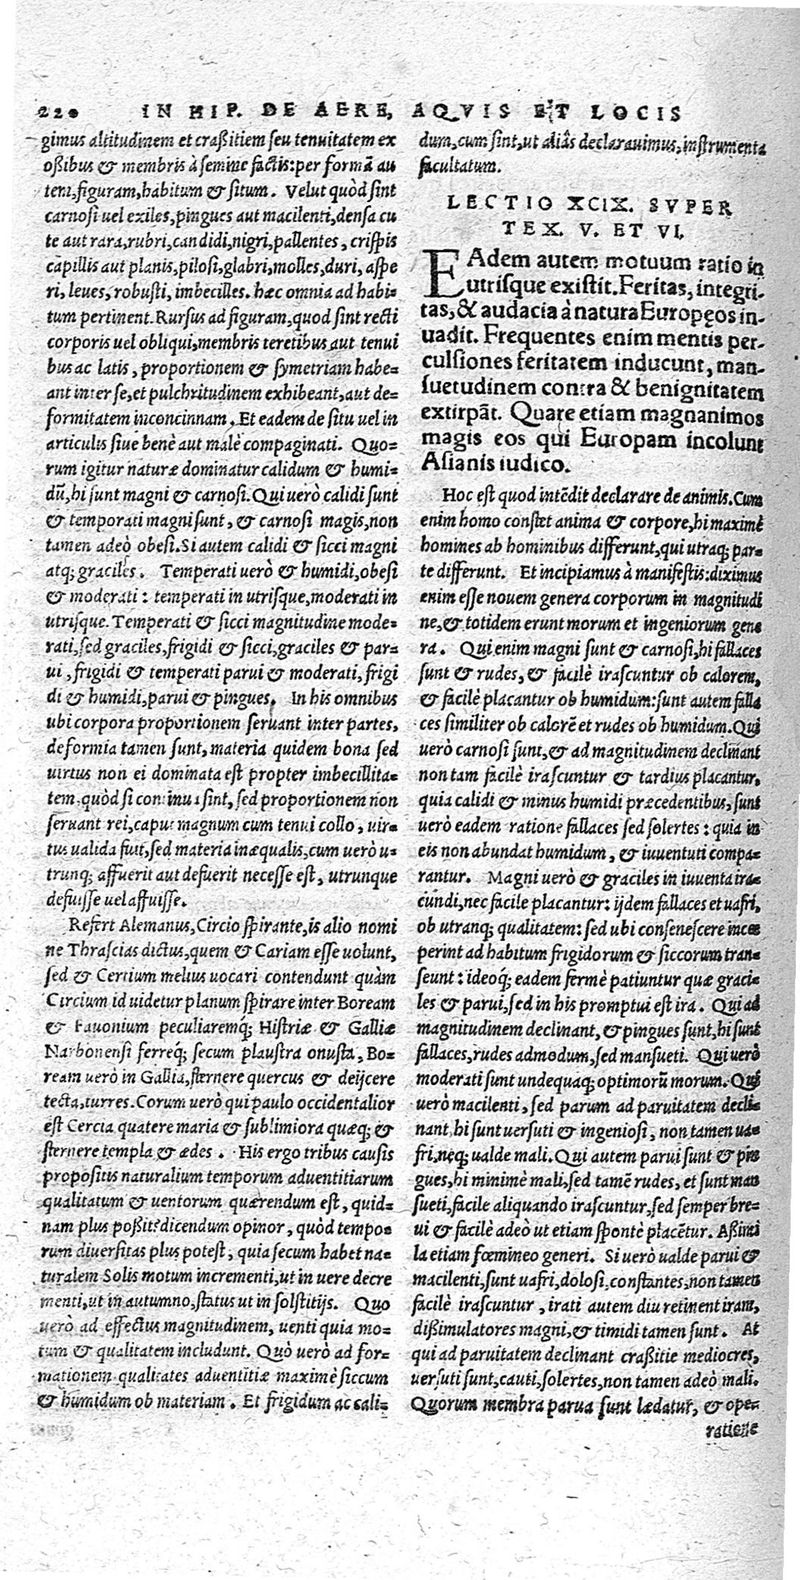 220 IN HIP. DE AERE, AQVIS ET LOCIS
gimus altitudinem et craßitiem seu tenuitatem ex
oßibus & membris à semine factis: per formã au
tem, figuram, habitum & situm. Velut quòd sint
carnosi uel exiles, pingues aut macilenti, densa cu
te aut rara, rubri, candidi, nigri, pallentes, crispis
capillis aut planis, pilosi, glabri, molles, duri, aspe
ri, leues, robusti, imbecilles. hæc omnia ad habi=
tum pertinent. Rursus ad figuram, quod sint recti
corporis uel obliqui, membris teretibus aut tenui
bus ac latis, proportionem & symetriam habe=
ant inter se, et pulchritudinem exhibeant, aut de=
formitatem inconcinnam. Et eadem de situ uel in
articulis siue benè aut malè compaginati. Quo=
rum igitur naturæ dominatur calidum & humi=
dũ, hi sunt magni & carnosi. Qui uerò calidi sunt
& temporati magni sunt, & carnosi magis, non
tamen adeò obesi. Si autem calidi & sicci magni
atq; graciles. Temperati uerò & humidi, obesi
& moderati: temperati in utrisque, moderati in
utrisque. Temperati & sicci magnitudine mode=
rati, sed graciles, frigidi & sicci, graciles & par=
ui, frigidi & temperati parui & moderati, frigi
di & humidi, parui & pingues. In his omnibus
ubi corpora proportionem seruant inter partes,
deformia tamen sunt, materia quidem bona sed
uirtus non ei dominata est propter imbecillita=
tem. quòd si continua sint, sed proportionem non
seruant rei, caput magnum cum tenui collo, uir=
tus ualida fuit, sed materia inæqualis, cum uerò u=
trunq; affuerit aut defuerit necesse est, utrunque
defuisse uel affuisse.
Refert Alemanus, Circio spirante, is alio nomi
ne Thrascias dictus, quem & Cariam esse uolunt,
sed & Certium melius uocari contendunt quàm
Circium id uidetur planum spirare inter Boream
& Fauonium peculiaremq; Histriæ & Galliæ
Narbonensi ferreq; secum plaustra onusta, Bo=
ream uerò in Gallia, sternere quercus & deijcere
tecta, turres. Corum uerò qui paulo occidentalior
est Cercia quatere maria & sublimiora quæq; &
sternere templa & ædes. His ergo tribus causis
propositis naturalium temporum aduentitiarum
qualitatum & uentorum quærendum est, quid=
nam plus poßit: dicendum opinor, quòd tempo=
rum diuersitas plus potest, quia secum habet na=
turalem Solis motum incrementi, ut in uere decre
menti, ut in autumno, status ut in solstitijs. Quo
uerò ad effectus magnitudinem, uenti quia mo=
tum & qualitatem includunt. Quò uerò ad for=
mationem qualitates aduentitiæ maximè siccum
& humidum ob materiam. Et frigidum ac cali=
dum, cum sint, ut aliàs declarauimus, instrumenta
facultatum.
LECTIO XCIX. SVPER
TEX. V. ET VI.
EAdem autem motuum ratio in
utrisque existit. Feritas, integri-
tas, & audacia à natura Europęos in-
uadit. Frequentes enim mentis per-
culsiones feritatem inducunt, man-
suetudinem contra & benignitatem
extirpãt. Quare etiam magnanimos
magis eos qui Europam incolunt
Asianis iudico.
Hoc est quod intẽdit declarare de animis. Cum
enim homo constet anima & corpore, hi maximè
homines ab hominibus differunt, qui utraq; par=
te differunt. Et incipiamus à manifestis: diximus
enim esse nouem genera corporum in magnitudi
ne, & totidem erunt morum et ingeniorum gene
ra. Qui enim magni sunt & carnosi, hi fallaces
sunt & rudes, & facilè irascuntur ob calorem,
& facilè placantur ob humidum: sunt autem falla
ces similiter ob calorẽ et rudes ob humidum. Qui
uerò carnosi sunt, & ad magnitudinem declinant
non tam facilè irascuntur & tardius placantur,
quia calidi & minus humidi præcedentibus, sunt
uerò eadem ratione fallaces sed solertes: quia in
eis non abundat humidum, & iuuentuti compa=
rantur. Magni uerò & graciles in iuuenta ira=
cundi, nec facile placantur: ijdem fallaces et uafri,
ob utranq; qualitatem: sed ubi consenescere incœ
perint ad habitum frigidorum & siccorum tran=
seunt: ideoq; eadem fermè patiuntur quæ graci=
les & parui, sed in his promptui est ira. Qui ad
magnitudinem declinant, & pingues sunt, hi sunt
fallaces, rudes admodum, sed mansueti. Qui uerò
moderati sunt undequaq; optimorũ morum. Qui
uerò macilenti, sed parum ad paruitatem decli=
nant, hi sunt uersuti & ingeniosi, non tamen ua=
fri, neq; ualde mali. Qui autem parui sunt & pin
gues, hi minimè mali, sed tamẽ rudes, et sunt man
sueti, facile aliquando irascuntur, sed semper bre=
ui & facilè adeò ut etiam spontè placẽtur. Aßimi
la etiam fœmineo generi. Si uerò ualde parui &
macilenti, sunt uafri, dolosi, constantes, non tamen
facilè irascuntur, irati autem diu retinent iram,
dißimulatores magni, & timidi tamen sunt. At
qui ad paruitatem declinant craßitie mediocres,
uersuti sunt, cauti, solertes, non tamen adeò mali.
Quorum membra parua sunt lædatur, & ope=
ratione